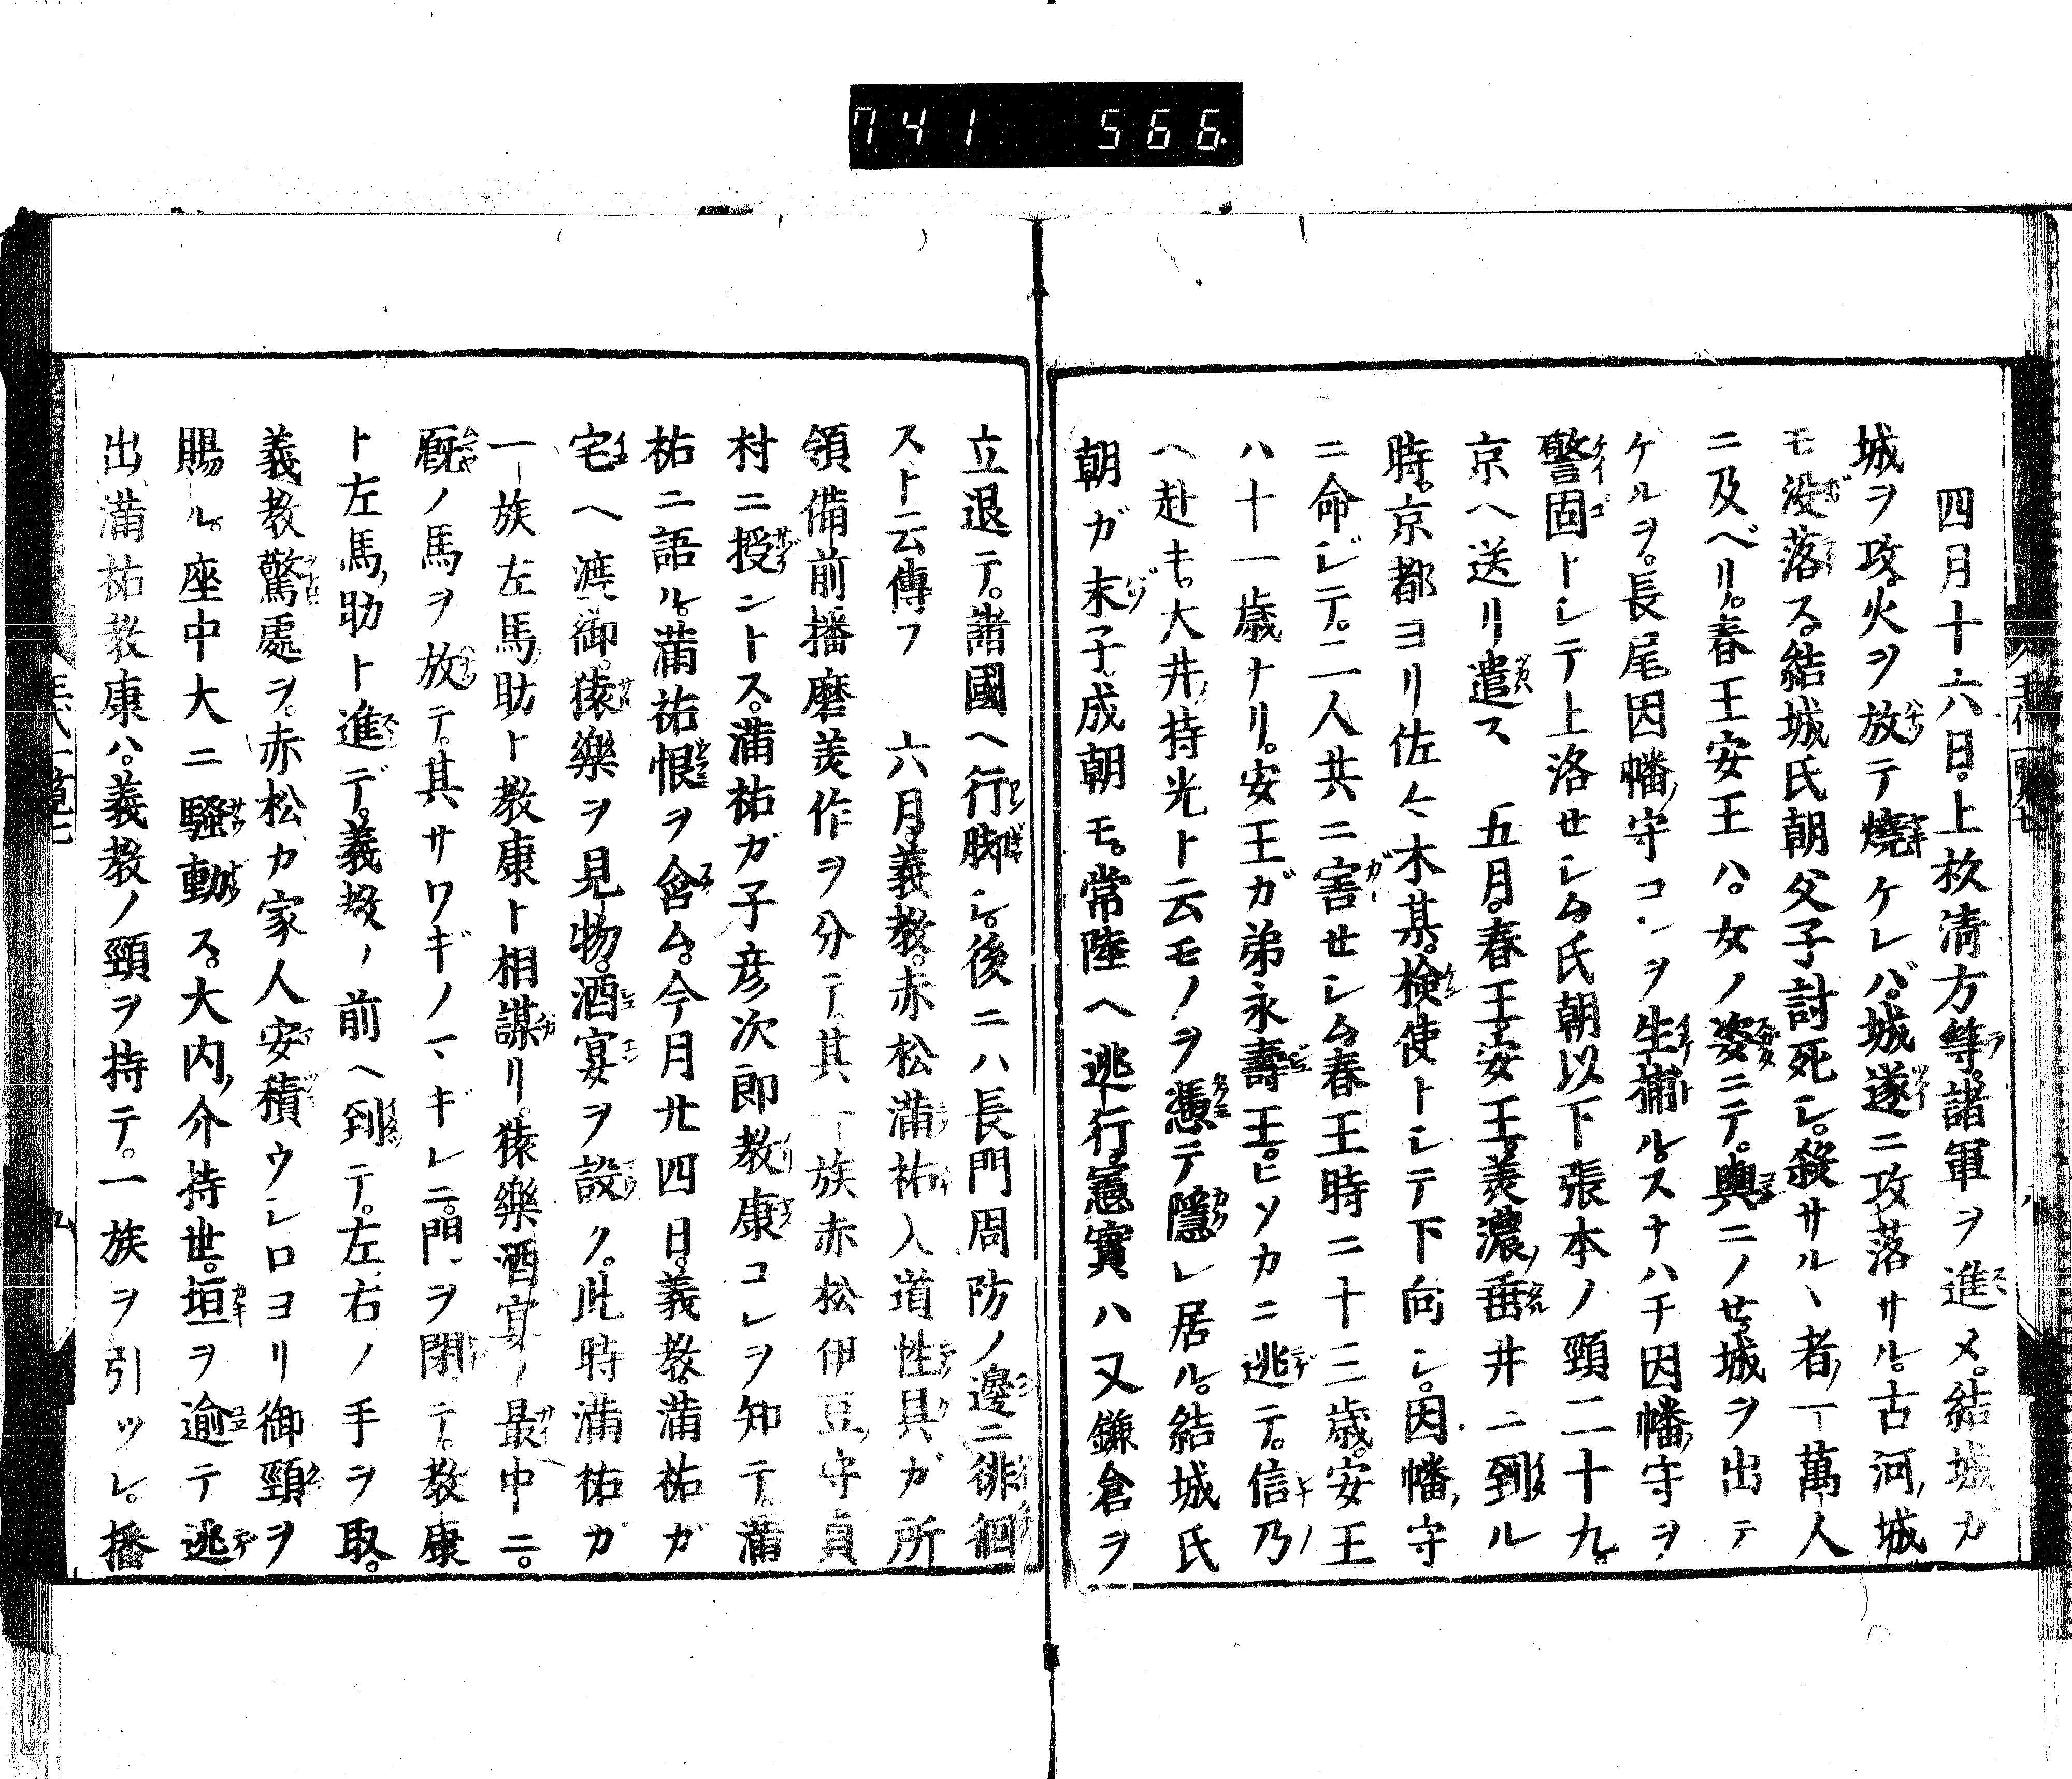 741 566
四月十六日。上杦清方等。諸軍ヲ進メ。結城カ
城ヲ攻。火ヲ放テ燒ケレバ。城遂ニ攻落サル。古河ノ城
モ没落ス。結城氏朝父子討死シ。殺サルヽ者ノ一萬人
ニ及ベリ。春王安王ハ。女ノ姿ニテ。輿ニノセ城ヲ出テ
ケルヲ。長尾因幡ノ守コレヲ生捕ル。スナハチ因幡ノ守ヲ
警固トシテ上洛セシム氏朝以下張本ノ頸二十九。
京ヘ送リ遣ス　五月。春王安王。美濃ノ垂井ニ到ル
時。京都ヨリ佐々木某。検使トシテ下向シ。因幡ノ守
ニ命ジテ。二人共ニ害セシム春王時ニ十三歳。安王
ハ十一歳ナリ。安王ガ弟永壽王。ヒソカニ逃テ。信乃
ヘ赴キ。大井ノ持光ト云モノヲ憑テ隱レ居ル。結城氏
朝ガ末子成朝モ。常陸ヘ逃行。憲實ハ又鎌倉ヲ
立退テ。諸國ヘ行脚シ。後ニハ長門周防ノ邊ニ徘徊
スト云傳フ　六月。義教。赤松滿祐入道性具ガ所
領備前播磨美作ヲ分テ。其一族赤松伊豆ノ守貞
村ニ授ントス。滿祐ガ子彦次郎教康コレヲ知テ。滿
祐ニ語ル。滿祐恨ヲ含ム。今月廿四日。義教。滿祐ガ
宅ヘ渡御。猿樂ヲ見物。酒宴ヲ設ク。此時滿祐ガ
一族左馬ノ助ト教康ト相謀リ。猿樂酒宴ノ最中ニ。
厩ノ馬ヲ放テ。其サワギノマギレニ。門ヲ閉テ。教康
ト左馬ノ助ト進デ。義教ノ前ヘ到テ。左右ノ手ヲ取。
義教驚處ヲ。赤松カ家人安積ウシロヨリ御頸ヲ
賜ル。座中大ニ騷動ス。大内ノ介持世。垣ヲ逾テ逃
出滿祐教康ハ。義教ノ頸ヲ持テ。一族ヲ引ツレ。播